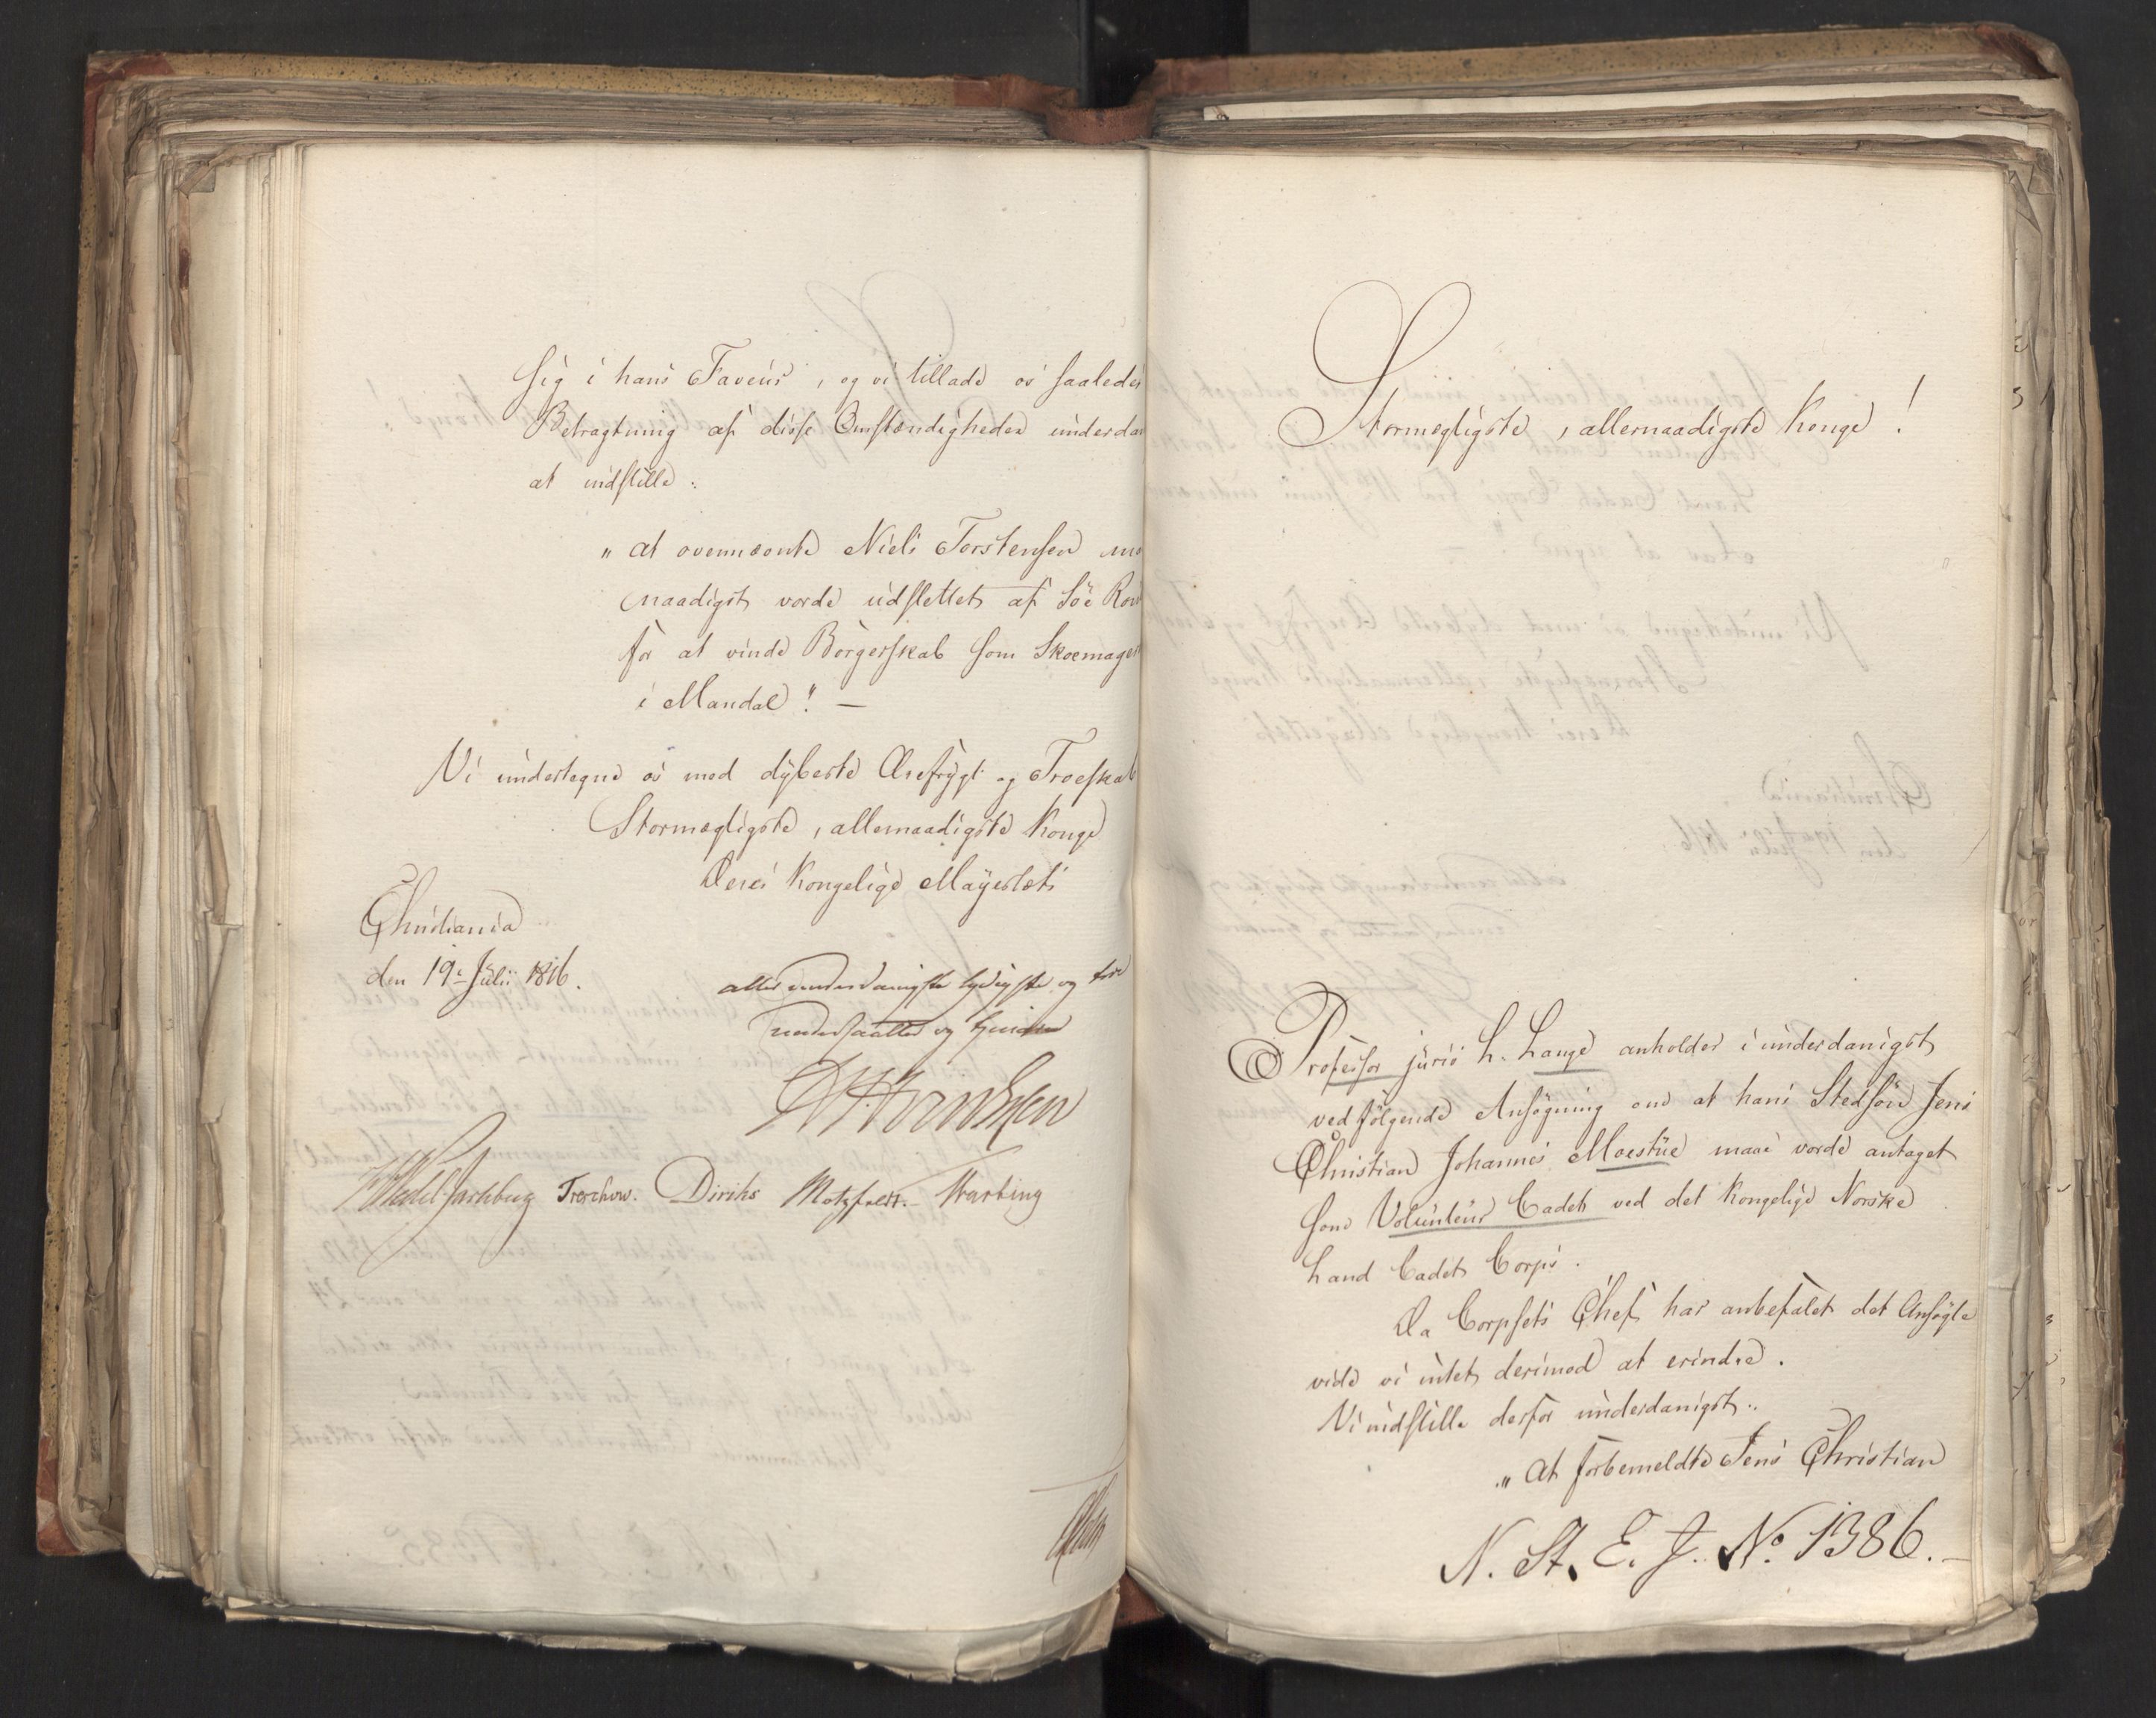 sig i hans Faveur, og vi tillade os saaledes
Betragtning af disse Omstændigheder underdan
at indstille:
„at ovennævnte Niels Torstensen maa
naadigst vorde udslettet af Söe Rou
for at vinde Borgerskab som Skoemager
i Mandal". —
Vi undertegne os med dybeste Ærefrygt og Troeskab
Stormægtigste, allernaadigste Konge
Deres Kongelige Mayestæts
Christiania
den 19de Julii 1816.
allerunderdanigste lydigste og troe
undersaatter og tjenere
Wedel Jarlsberg Treschow. Diriks Motzfeldt. Krebs
Stormægtigste, allernaadigste Konge!
Professor juris L. Lange anholder i underdanigst
vedfölgende Ansögning om at hans Stedsön Jens
Christian Johannes Moestue maae vorde antaget
som Volunteur Cadet ved det Kongelige Norske
Land Cadet Corps.
Da Corpsets Chef har anbefalet det Ansögte
vide vi intet derimod at erindre.
Vi indstille derfor underdanigst:
„At forbemeldte Jens Christian
N. St. E. J. No. 1386.